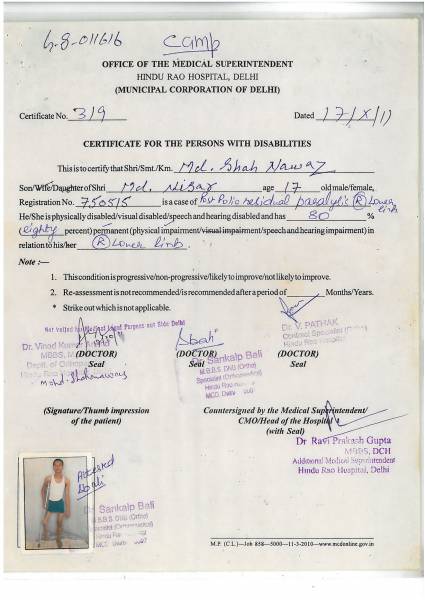 CAMP
OFFICE OF THE MEDICAL SUPERINTENDENT
HINDU RAO HOSPITAL, DELHI
(MUNICIPAL CORPORATION OF DELHI)
Certificate No. 319 Dated 17/X/11
CERTIFICATE FOR THE PERSONS WITH DISABILITIES
This is to certify that Shri/Smt./Km. Md. Shah Nawaz
Son/Wife/Daughter of Shri Md. Nisar age 17 old male/female,
Registration No. 750515 is a case of Post Polio residual paralytic (R) Lower limb
He/She is physically disabled/visual disabled/speech and hearing disabled and has 80 %
(eighty percent) permanent (physical impairment/visual impairment/speech and hearing impairment) in
relation to his/her (R) Lower limb.
Note :—
1. This condition is progressive/non-progressive/likely to improve/not likely to improve.
2. Re-assessment is not recommended/is recommended after a period of Months/Years.
* Strike out which is not applicable.
Not Valied for Medical Legal Purpous out Side Delhi
Dr. Vinod Kumar
MBBS,
Deptt. of Orthop
Hindu Rao
(DOCTOR)
Seal
Mohd. Shahanawaz
Sbali
(DOCTOR)
Seal
Dr. Sankalp Bali
M.B.B.S. DNB (Ortho)
Specialist (Orthopaedics)
Hindu Rao
MCD, Delhi
Dr. V. PATHAK
Contract Specialist
Hindu Rao Hospital
(DOCTOR)
Seal
(Signature/Thumb impression
of the patient)
Countersigned by the Medical Superintendent/
CMO/Head of the Hospital
(with Seal)
Dr Ravi Prakash Gupta
MBBS, DCH
Additional Medical Superintendent
Hindu Rao Hospital, Delhi
Attested
Sbali
Dr. Sankalp Bali
M.B.B.S. DNB (Ortho)
Specialist (Orthopaedics)
Hindu
MCD, Delhi
M.P. (C.L.)—Job 858—5000—11-3-2010—www.mcdonline.gov.in